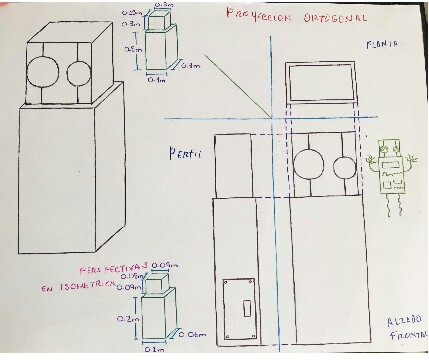 PROYECCION ORTOGONAL
0.3m
0.3m
0.3m
PLANTA
PERFIL
PERSPECTIVAS
EN ISOMETRICA
0.09m
0.09m
0.2m
0.06m
0.1m
ALZADO
FRONTAL